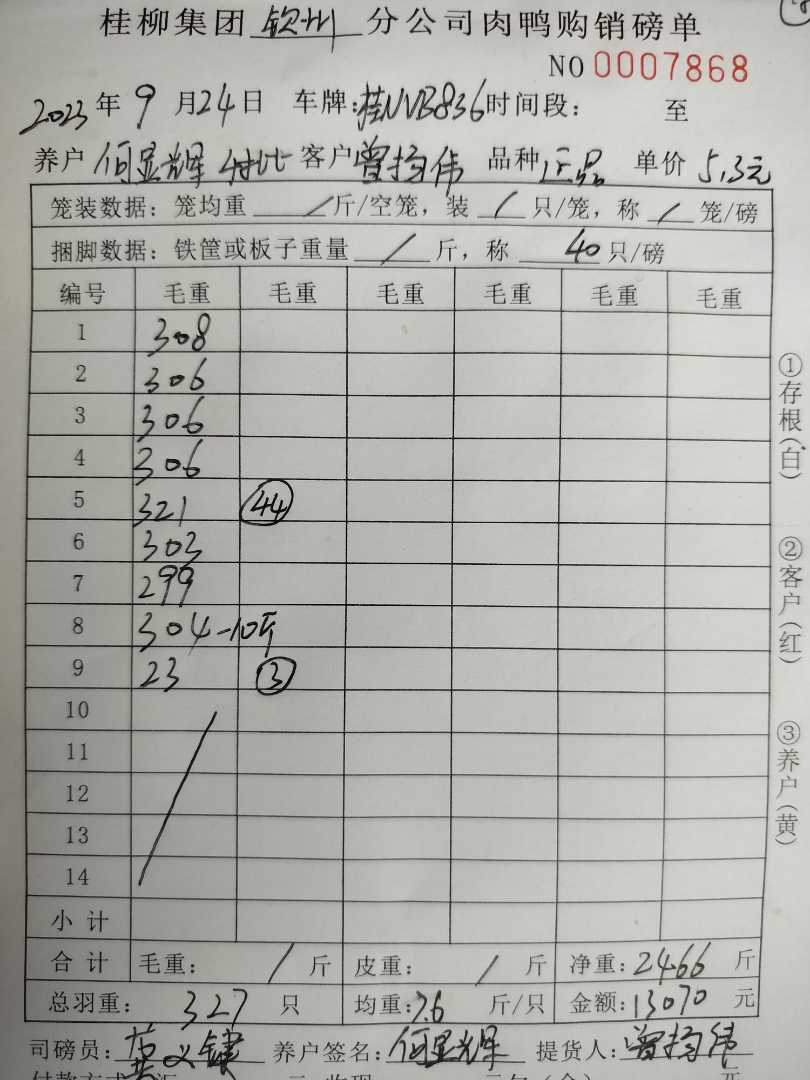 桂柳集团 钦州 分公司肉鸭购销磅单
NO 0007868
2023 年 9 月 24 日 车牌: 桂NVB836 时间段: 至
养户 何显辉 客户 曾扬伟 品种 正品 单价 5.3元
笼装数据: 笼均重 / 斤/空笼, 装 / 只/笼, 称 / 笼/磅
捆脚数据: 铁筐或板子重量 / 斤, 称 40 只/磅
编号 毛重 毛重 毛重 毛重 毛重 毛重
1 308
2 306
3 306
4 306
5 321 44
6 303
7 299
8 304 -10斤
9 23 3
10
11
12
13
14
小计
合计 毛重: / 斤 皮重: / 斤 净重: 2466 斤
总羽重: 327 只 均重: 7.6 斤/只 金额: 13070 元
司磅员: 莫义键 养户签名: 何显辉 提货人: 曾扬伟
①存根(白)
②客户(红)
③养户(黄)